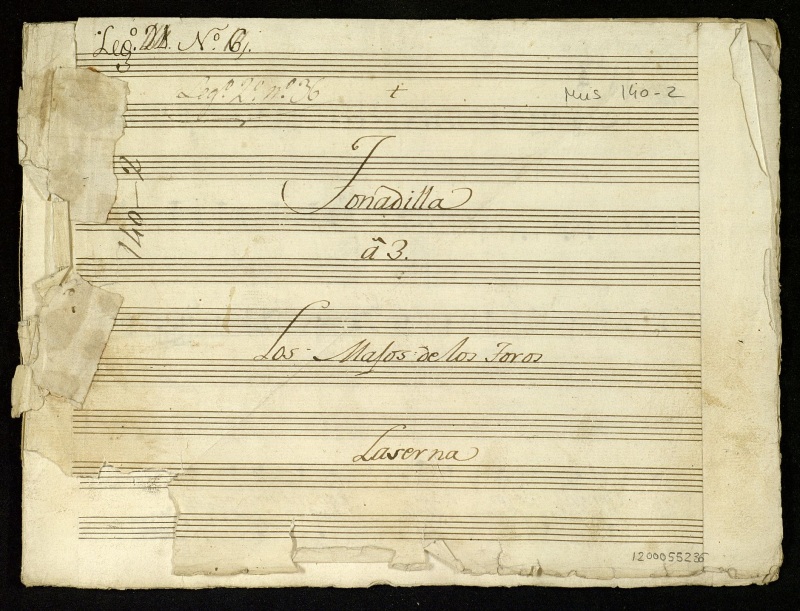 Leg.º 21. N.º 6,
Leg.º 2.º n.º 36
t
Mus 140-2
140-2
Tonadilla
â 3.
Los Majos de los Toros
Laserna
1200055235